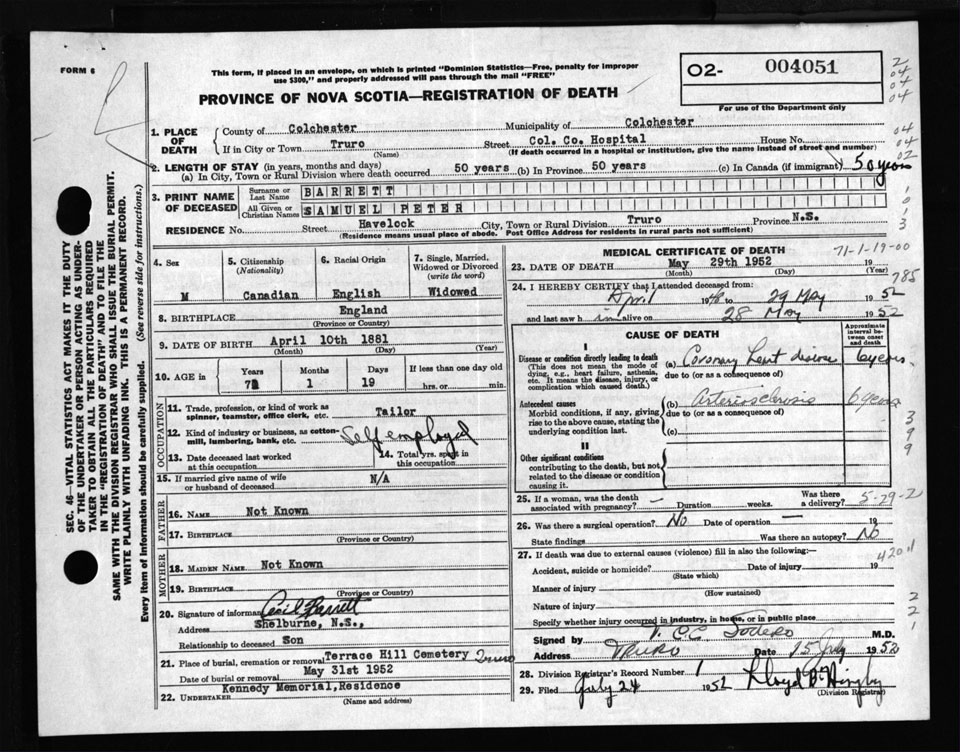 FORM 6
This form, if placed in an envelope, on which is printed "Dominion Statistics—Free, penalty for improper
use $300," and properly addressed will pass through the mail "FREE"
PROVINCE OF NOVA SCOTIA—REGISTRATION OF DEATH
O2- 004051
For use of the Department only
1. PLACE OF DEATH
County of Colchester Municipality of Colchester
If in City or Town Truro Street Col. Co. Hospital House No.
(Name) (If death occurred in a hospital or institution, give the name instead of street and number)
2. LENGTH OF STAY (in years, months and days)
(a) In City, Town or Rural Division where death occurred 50 years (b) In Province 50 years (c) In Canada (if immigrant) 50 years
3. PRINT NAME OF DECEASED
Surname or Last Name BARRETT
All Given or Christian Names SAMUEL PETER
RESIDENCE No. Street Havelock City, Town or Rural Division Truro Province N.S.
(Residence means usual place of abode. Post Office Address for residents in rural parts not sufficient)
4. Sex M
5. Citizenship (Nationality) Canadian
6. Racial Origin English
7. Single, Married, Widowed or Divorced (write the word) Widowed
8. BIRTHPLACE England
(Province or Country)
9. DATE OF BIRTH April 10th 1881
(Month) (Day) (Year)
10. AGE in Years Months Days If less than one day old
71 1 19 hrs. or min.
OCCUPATION
11. Trade, profession, or kind of work as spinner, teamster, office clerk, etc. Tailor
12. Kind of industry or business, as cotton-mill, lumbering, bank, etc. Self employed
13. Date deceased last worked at this occupation
14. Total yrs. spent in this occupation
15. If married give name of wife or husband of deceased N/A
FATHER
16. NAME Not Known
17. BIRTHPLACE
(Province or Country)
MOTHER
18. MAIDEN NAME Not Known
19. BIRTHPLACE
(Province or Country)
20. Signature of informant Cecil Barrett
Address Shelburne, N.S.,
Relationship to deceased Son
21. Place of burial, cremation or removal Terrace Hill Cemetery Truro
Date of burial or removal May 31st 1952
22. UNDERTAKER Kennedy Memorial, Residence
(Name and address)
MEDICAL CERTIFICATE OF DEATH
71-1-19-00
23. DATE OF DEATH May 29th 1952 19
(Month) (Day) (Year)
785
24. I HEREBY CERTIFY that I attended deceased from:
April 1946 to 29 May 1952
and last saw h im alive on 28 May 1952
CAUSE OF DEATH
Approximate interval between onset and death
I
Disease or condition directly leading to death
(This does not mean the mode of dying, e.g., heart failure, asthenia, etc. It means the disease, injury, or complication which caused death.)
(a) Coronary heart disease 6 years
due to (or as a consequence of)
Antecedent causes
Morbid conditions, if any, giving rise to the above cause, stating the underlying condition last.
(b) Arteriosclerosis 6 years
due to (or as a consequence of)
(c)
II
Other significant conditions
contributing to the death, but not related to the disease or condition causing it.
25. If a woman, was the death associated with pregnancy? — Duration weeks. Was there a delivery?
5-29-2
26. Was there a surgical operation? No Date of operation — 19
State findings Was there an autopsy? No
27. If death was due to external causes (violence) fill in also the following:—
420.1
Accident, suicide or homicide? Date of injury 19
(State which)
Manner of injury
(How sustained)
Nature of injury
Specify whether injury occurred in industry, in home, or in public place
Signed by M.D.
Address Truro Date 15 July 1952
28. Division Registrar's Record Number 1
29. Filed July 24 1952
(Division Registrar)
SEC. 46—VITAL STATISTICS ACT MAKES IT THE DUTY
OF THE UNDERTAKER OR PERSON ACTING AS UNDER-
TAKER TO OBTAIN ALL THE PARTICULARS REQUIRED
IN THE "REGISTRATION OF DEATH" AND TO FILE THE
SAME WITH THE DIVISION REGISTRAR WHO SHALL ISSUE THE BURIAL PERMIT.
WRITE PLAINLY WITH UNFADING INK. THIS IS A PERMANENT RECORD.
Every item of information should be carefully supplied. (See reverse side for instructions.)
2
04
04
04
04
04
02
1
0
1
3
3
9
9
2
2
1